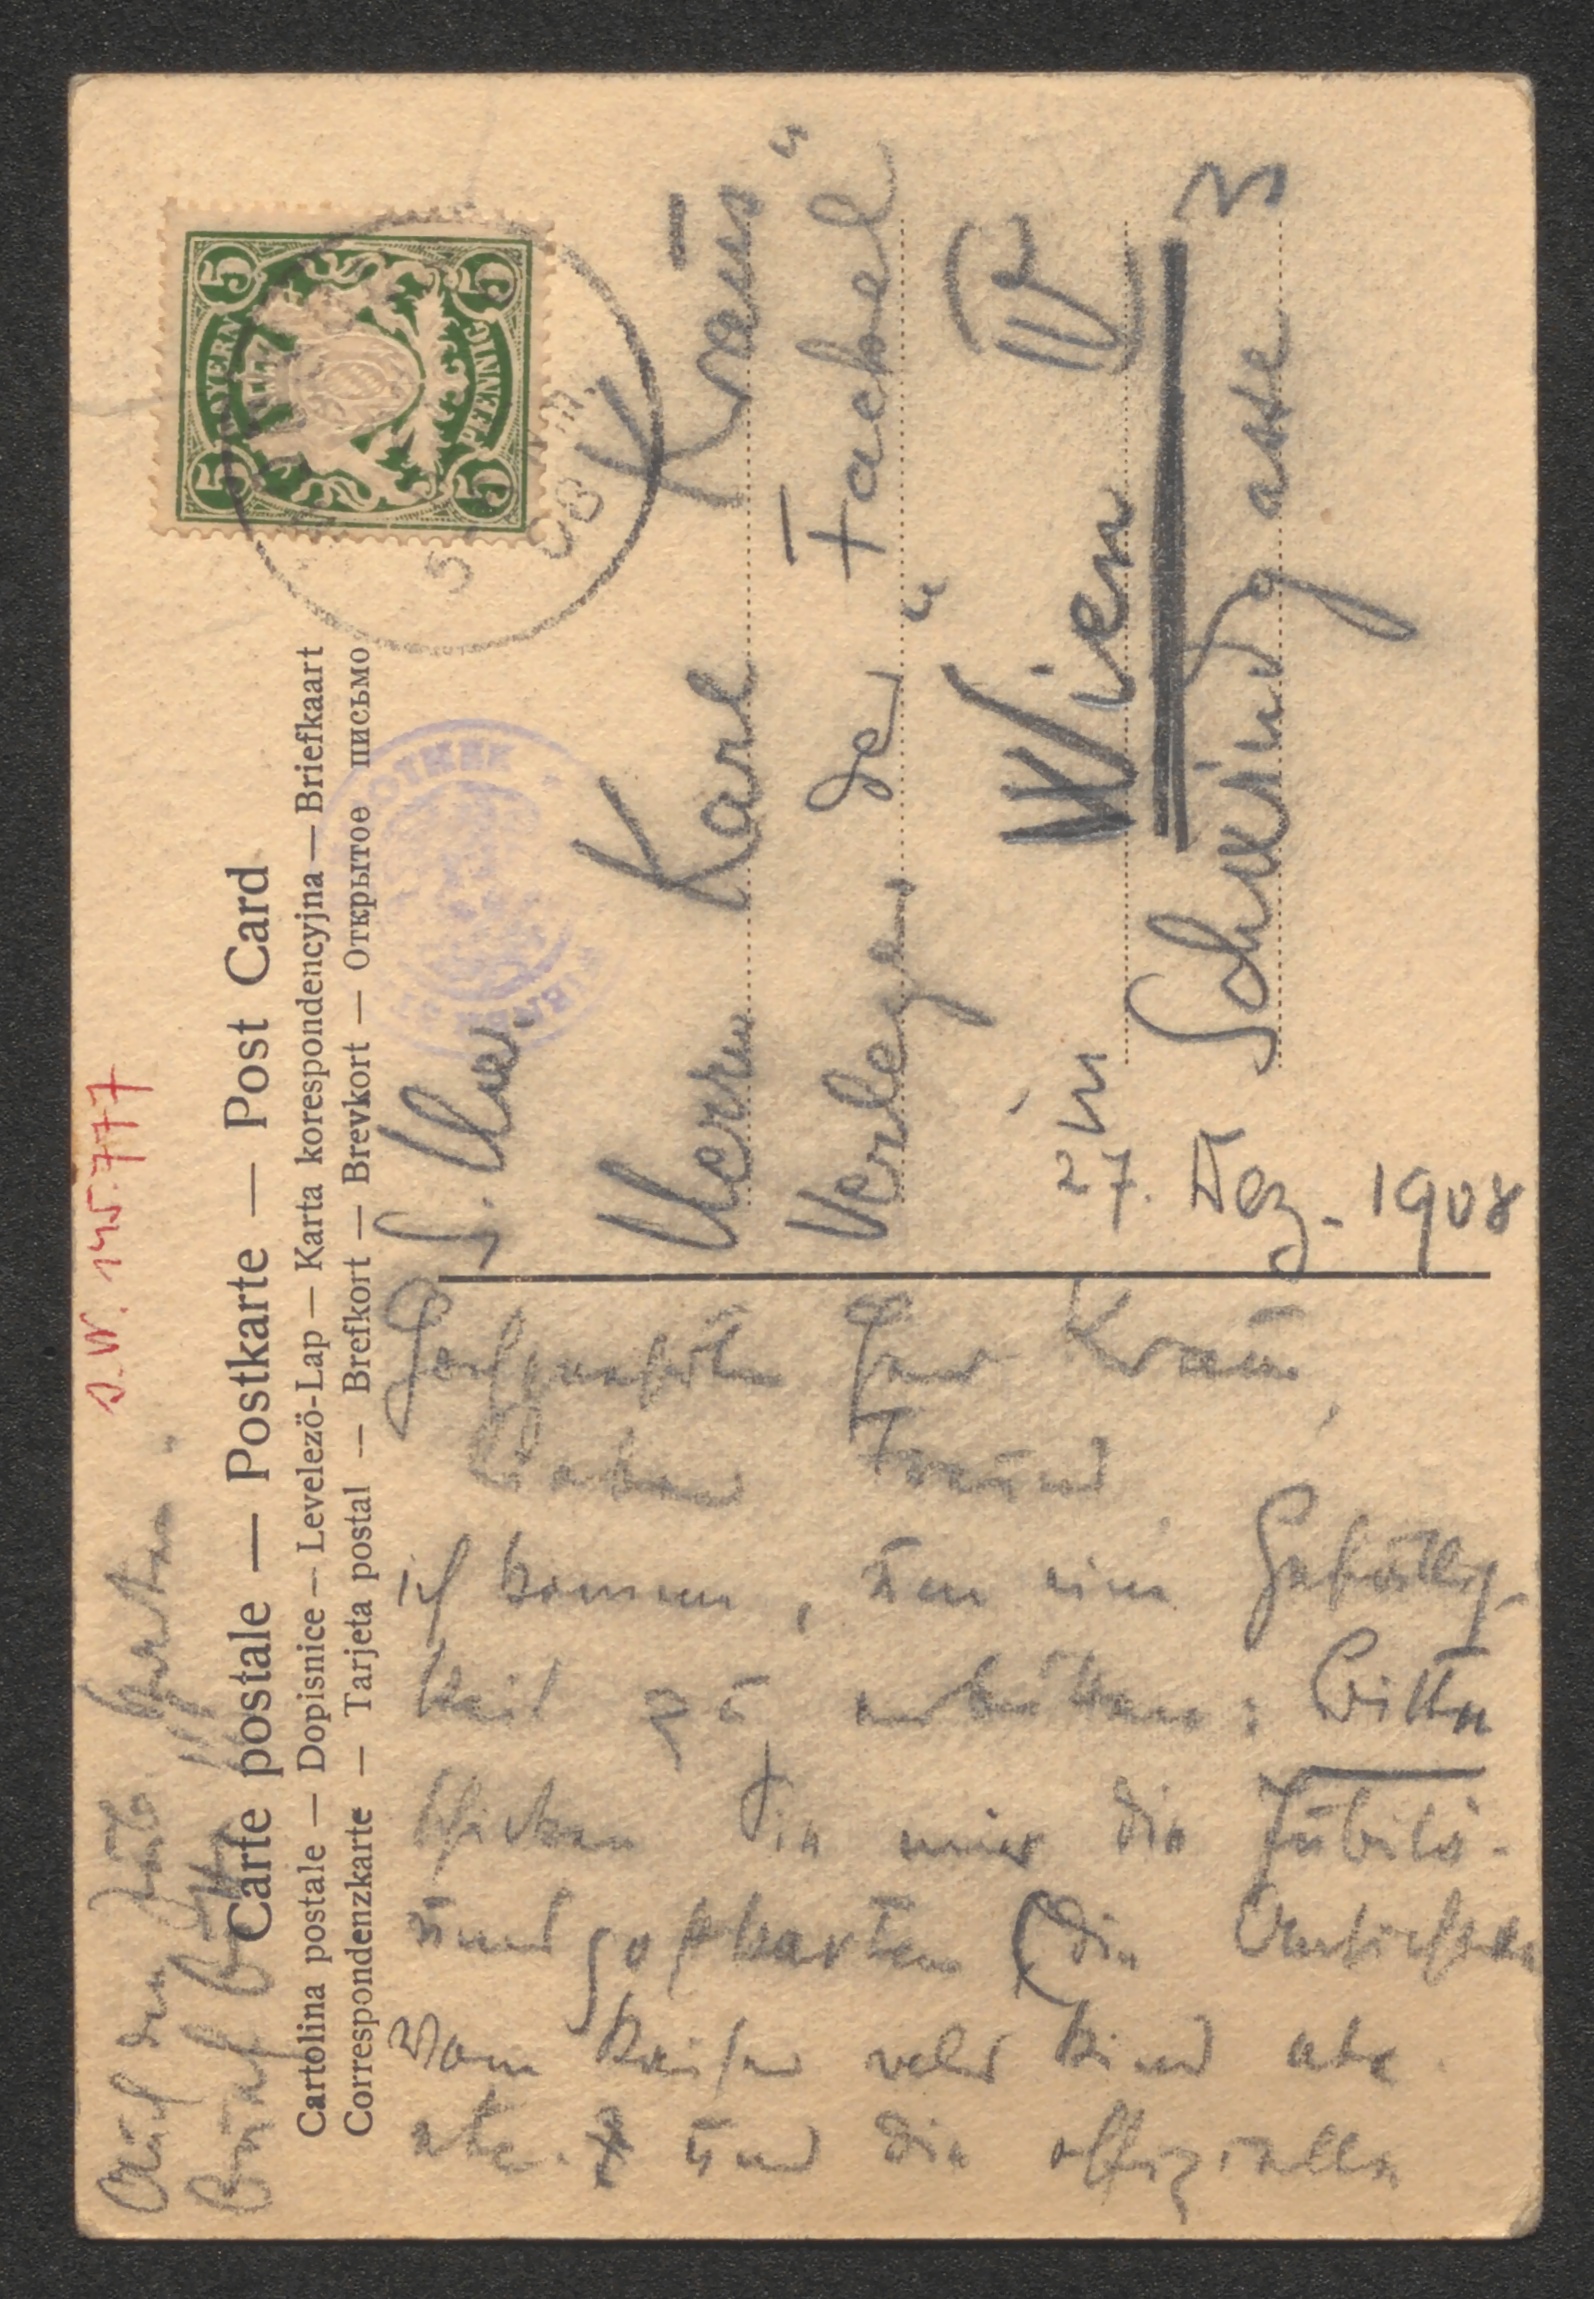 J.N. 145.777
Carte postale — Postkarte — Post Card
Cartolina postale — Dopisnice — Levelező-Lap — Karta korespondencyjna — Briefkaart
Correspondenzkarte — Tarjeta postal — Brefkort — Brevkort — Открытое письмо
BAYERN
5 5
PFENNIG
5 5
5
08
S. Hw.
Herrn Karl Kraus
Verleger der „Fackel“
in Wien (IV)
Schwindgasse 3
27. Dez. 1908
Herr Kraus,
Lieber Freund
ich komme, um eine Gefällig-
keit zu erbitten: Bitte
schicken Sie mir die Jubilä-
umspostkarten (die Ansichten
vom Kaiser als Kind etc.
etc. und die offiziellen
Auch das
Buch